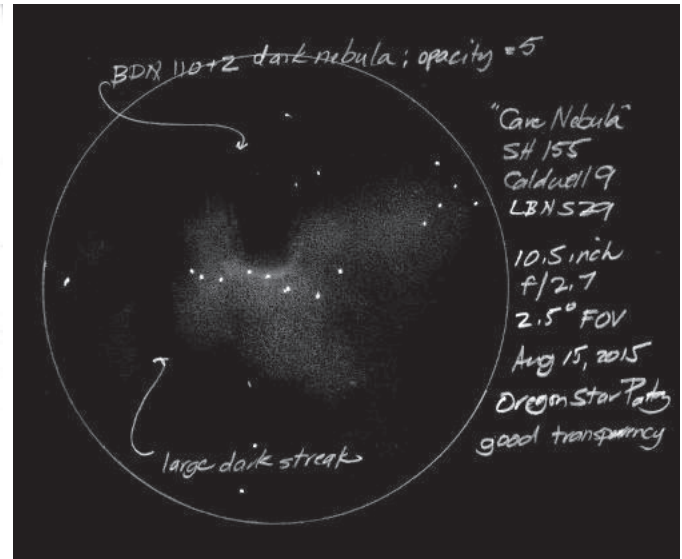 BDN 110+2 dark nebula; opacity = 5
"Cave Nebula"
SH 155
Caldwell 9
LBN 529
10.5 inch
f/2.7
2.5° FOV
Aug 15, 2015
Oregon Star Party
good transparency
large dark streak